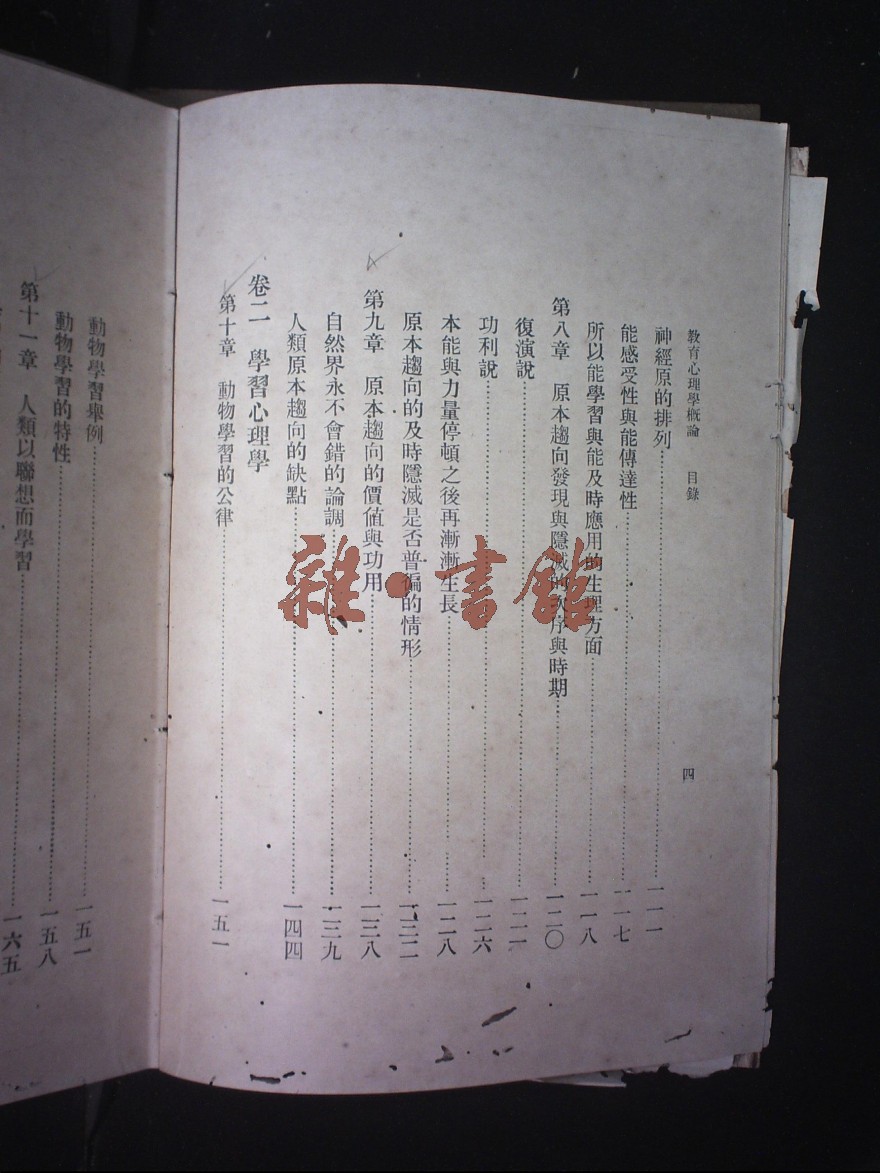 教育心理學概論　目錄
四
神經原的排列……一一一
能感受性與能傳達性……一一七
所以能學習與能及時應用的生理方面……一一八
第八章　原本趨向發現與隱滅的次序與時期……一二〇
復演說……一二一
功利說……一二六
本能與力量停頓之後再漸漸生長……一二八
原本趨向的及時隱滅是否普徧的情形……一三二
第九章　原本趨向的價值與功用……一三八
自然界永不會錯的論調……一三九
人類原本趨向的缺點……一四四
卷二　學習心理學
第十章　動物學習的公律……一五一
動物學習舉例……一五一
動物學習的特性……一五八
第十一章　人類以聯想而學習……一六五
雜·書館